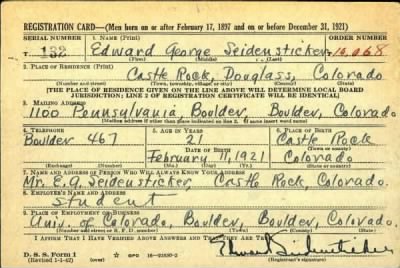 REGISTRATION CARD—(Men born on or after February 17, 1897 and on or before December 31, 1921)
SERIAL NUMBER 1. NAME (Print) ORDER NUMBER
T 132 Edward George Seidensticker 10,068
(First) (Middle) (Last)
2. PLACE OF RESIDENCE (Print)
Castle Rock, Douglass, Colorado
(Number and street) (Town, township, village, or city) (County) (State)
[THE PLACE OF RESIDENCE GIVEN ON THE LINE ABOVE WILL DETERMINE LOCAL BOARD
JURISDICTION; LINE 2 OF REGISTRATION CERTIFICATE WILL BE IDENTICAL]
3. MAILING ADDRESS
1100 Pennsylvania, Boulder, Boulder, Colorado
[Mailing address if other than place indicated on line 2. If same insert word same]
4. TELEPHONE 5. AGE IN YEARS 6. PLACE OF BIRTH
Boulder 467 21 Castle Rock
DATE OF BIRTH (Town or county)
February 11, 1921 Colorado
(Exchange) (Number) (Mo.) (Day) (Yr.) (State or country)
7. NAME AND ADDRESS OF PERSON WHO WILL ALWAYS KNOW YOUR ADDRESS
Mr. E.G. Seidensticker, Castle Rock, Colorado.
8. EMPLOYER'S NAME AND ADDRESS
student
9. PLACE OF EMPLOYMENT OR BUSINESS
Univ. of Colorado, Boulder, Boulder, Colorado.
(Number and street or R. F. D. number) (Town) (County) (State)
I AFFIRM THAT I HAVE VERIFIED ABOVE ANSWERS AND THAT THEY ARE TRUE.
D. S. S. Form 1
(Revised 1-1-42) (over)
Edward Seidensticker